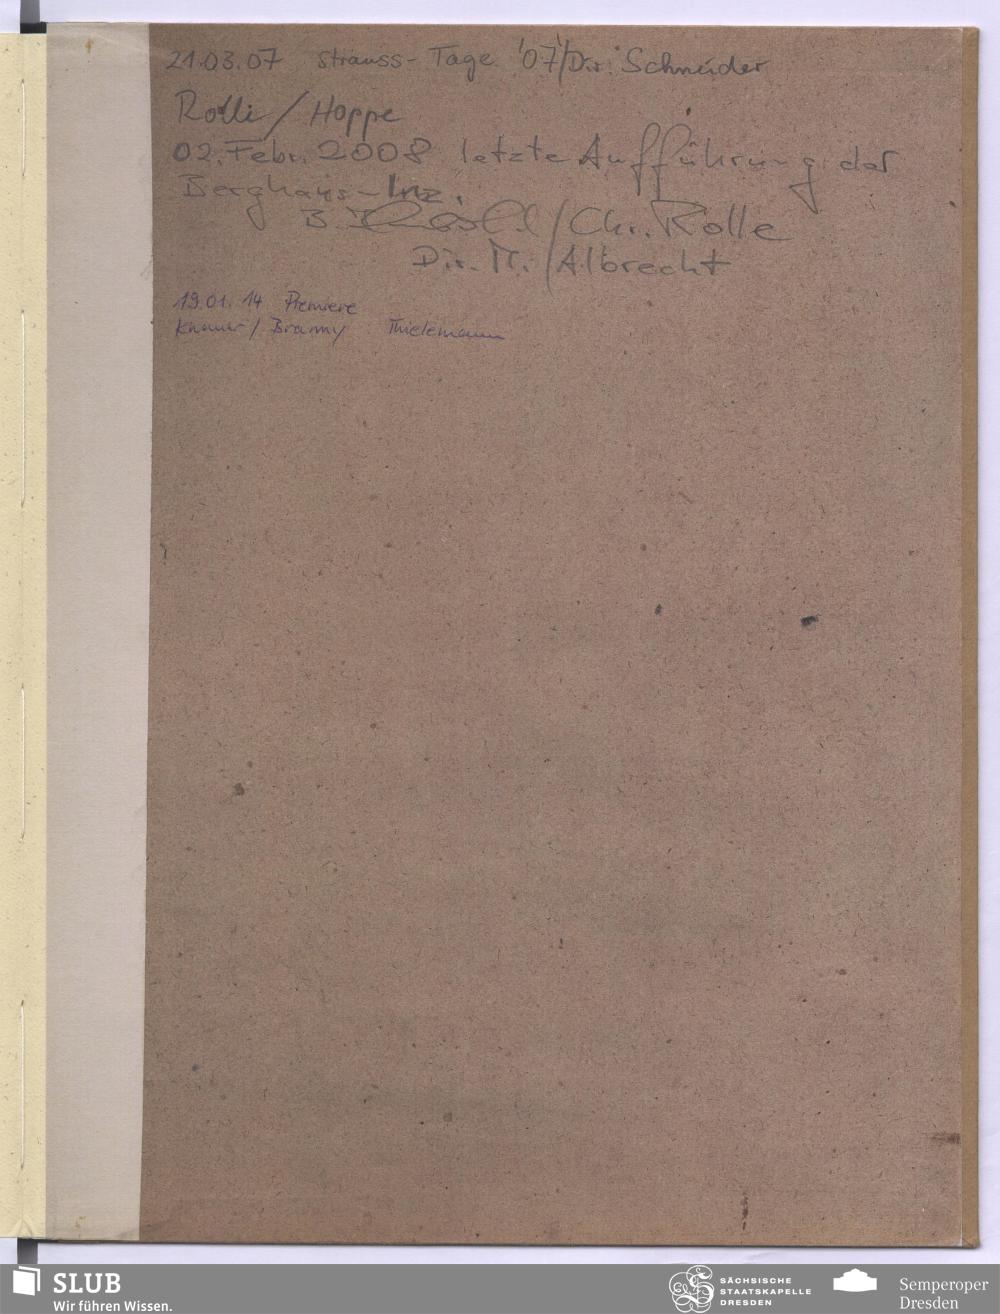 21.03.07 Strauss-Tage '07/Dir. Schneider
Rolli / Hoppe
02. Febr. 2008 letzte Aufführung der
Berghaus-Inz.
B. /Chr. Rolle
Dir. M. Albrecht
19.01.14 Premiere
Knauer / Branny Thielemann
SLUB
Wir führen Wissen.
SÄCHSISCHE
STAATSKAPELLE
DRESDEN
Semperoper
Dresden